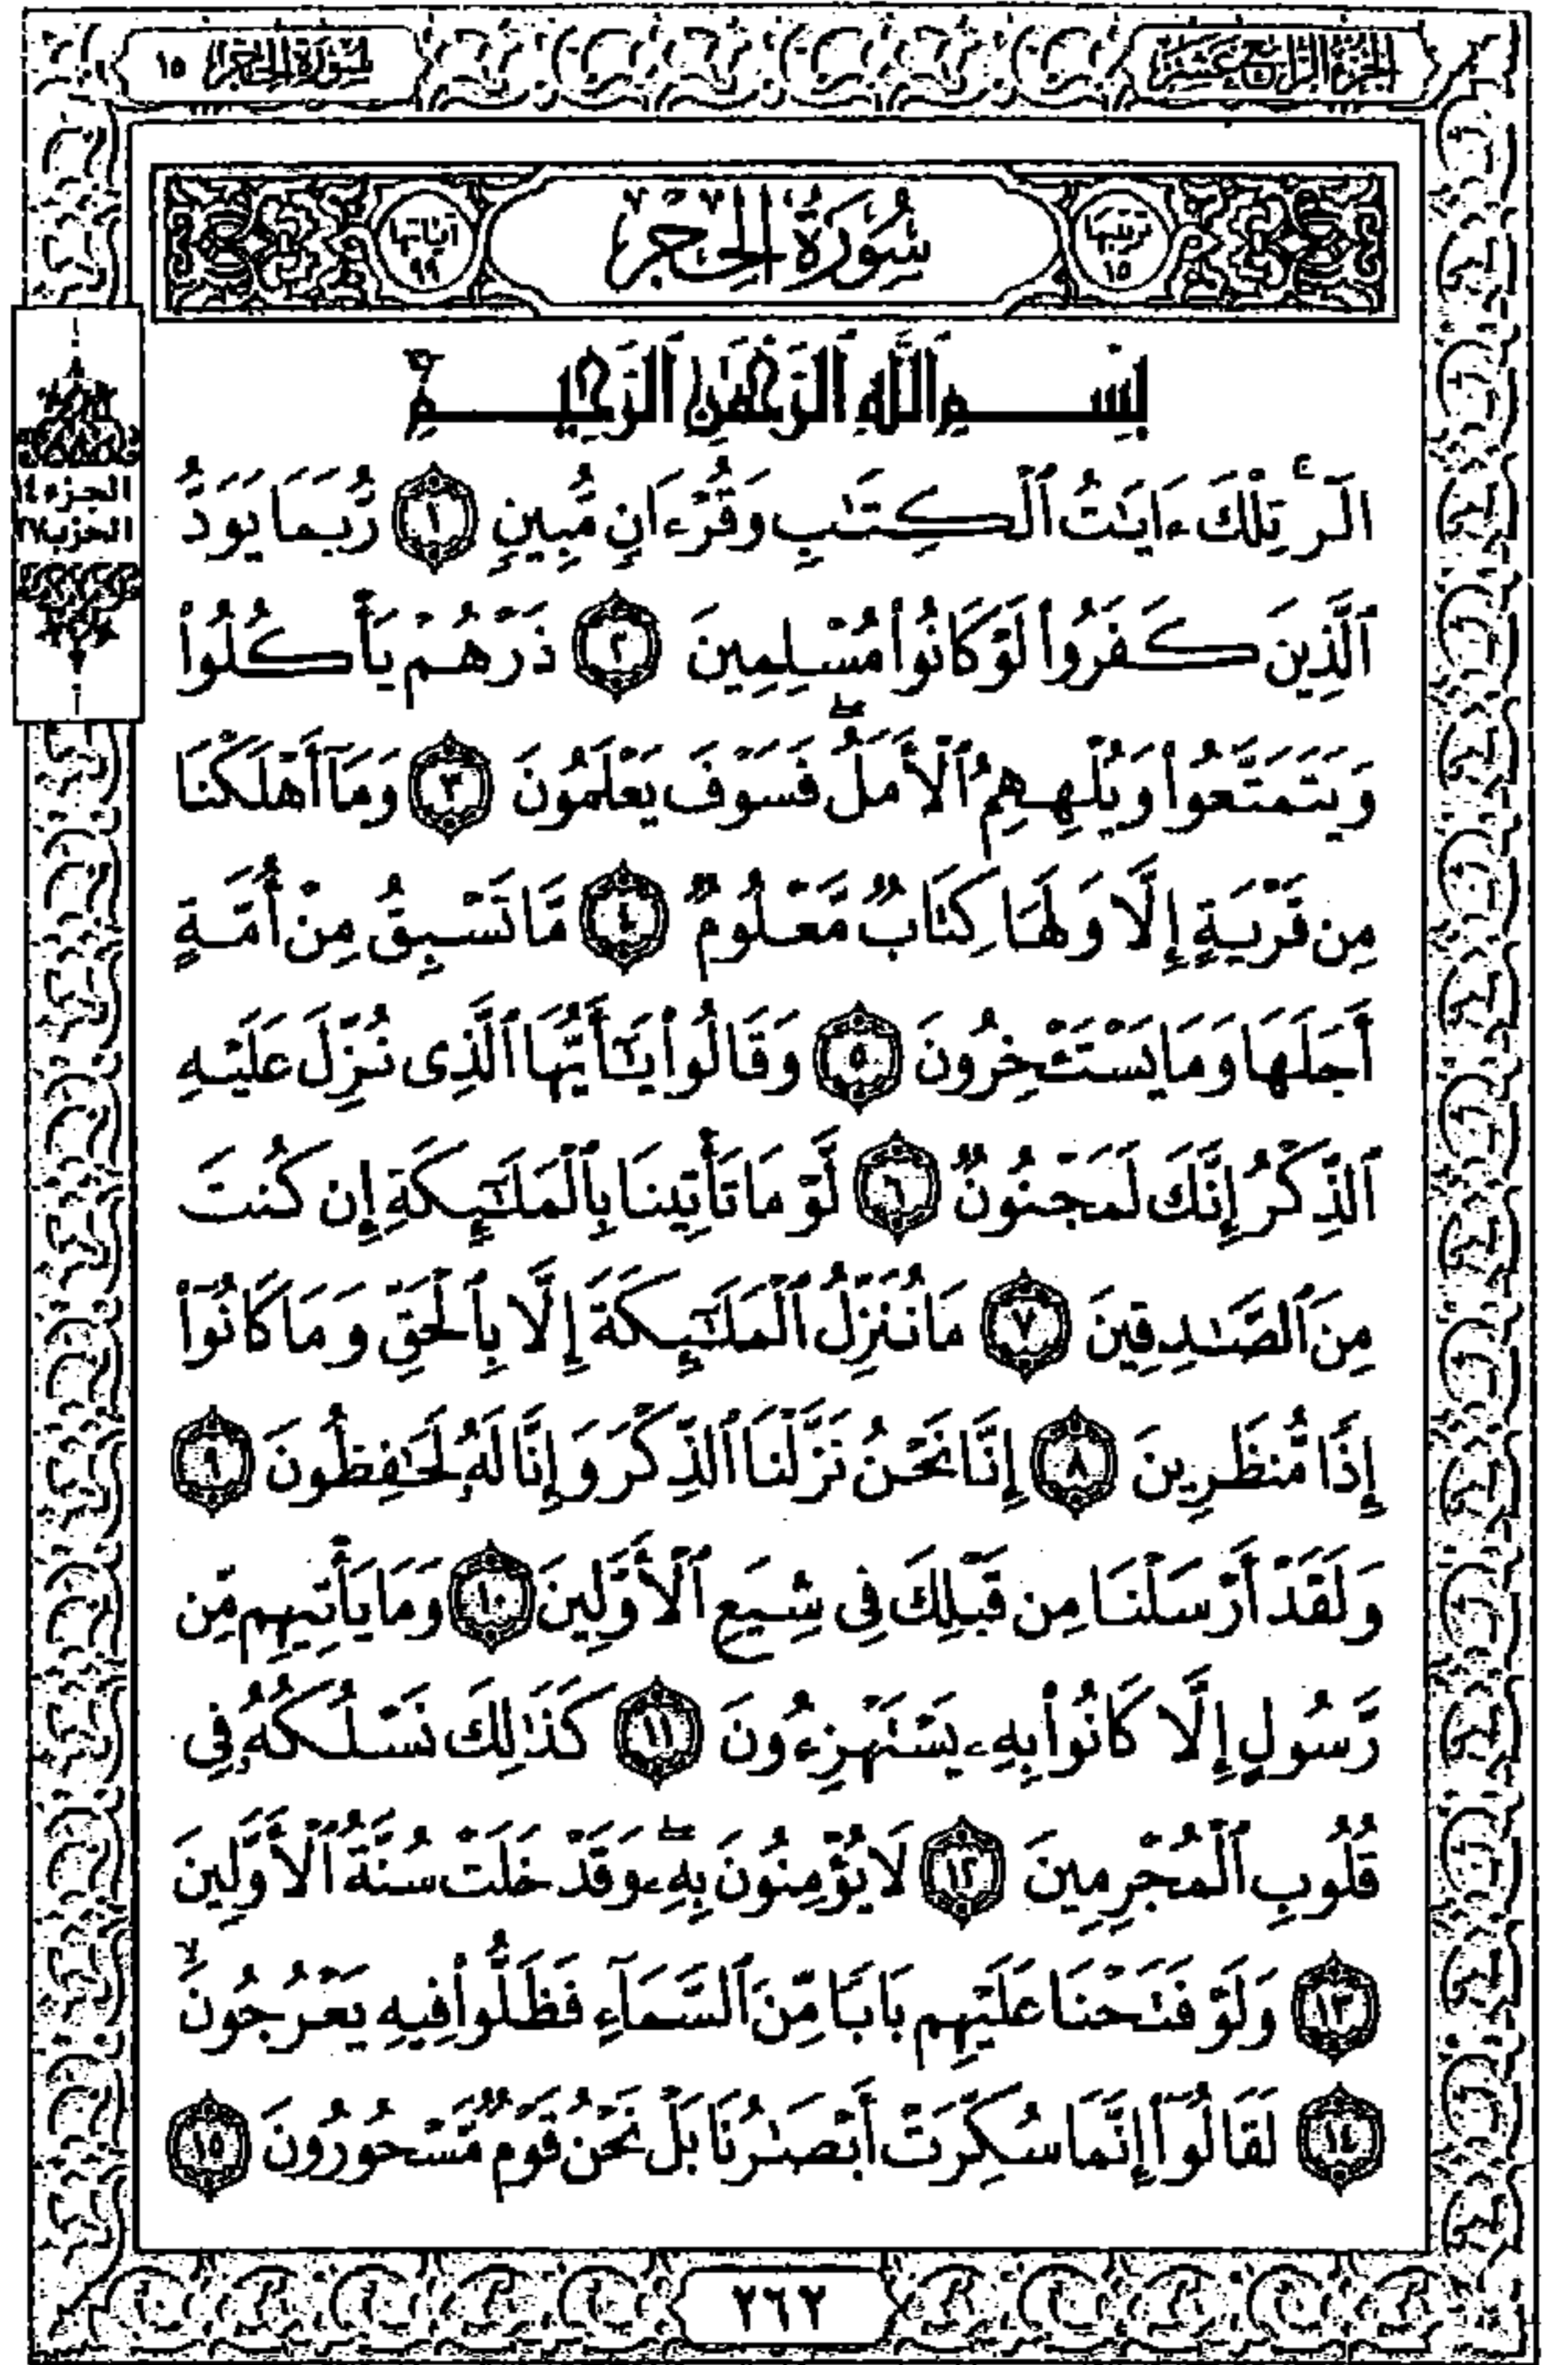 الجزء الرابع عشر
سورة الحجر ١٥
ترتيبها ١٥
سُورَةُ الحِجْرِ
آياتها ٩٩
بِسْمِ ٱللَّهِ ٱلرَّحْمَٰنِ ٱلرَّحِيمِ
الٓرۚ تِلْكَ ءَايَٰتُ ٱلْكِتَٰبِ وَقُرْءَانٍ مُّبِينٍ ١ رُّبَمَا يَوَدُّ
ٱلَّذِينَ كَفَرُوا۟ لَوْ كَانُوا۟ مُسْلِمِينَ ٢ ذَرْهُمْ يَأْكُلُوا۟
وَيَتَمَتَّعُوا۟ وَيُلْهِهِمُ ٱلْأَمَلُۖ فَسَوْفَ يَعْلَمُونَ ٣ وَمَآ أَهْلَكْنَا
مِن قَرْيَةٍ إِلَّا وَلَهَا كِتَابٌ مَّعْلُومٌ ٤ مَّا تَسْبِقُ مِنْ أُمَّةٍ
أَجَلَهَا وَمَا يَسْتَـْٔخِرُونَ ٥ وَقَالُوا۟ يَٰٓأَيُّهَا ٱلَّذِى نُزِّلَ عَلَيْهِ
ٱلذِّكْرُ إِنَّكَ لَمَجْنُونٌ ٦ لَّوْ مَا تَأْتِينَا بِٱلْمَلَٰٓئِكَةِ إِن كُنتَ
مِنَ ٱلصَّٰدِقِينَ ٧ مَا نُنَزِّلُ ٱلْمَلَٰٓئِكَةَ إِلَّا بِٱلْحَقِّ وَمَا كَانُوٓا۟
إِذًا مُّنظَرِينَ ٨ إِنَّا نَحْنُ نَزَّلْنَا ٱلذِّكْرَ وَإِنَّا لَهُۥ لَحَٰفِظُونَ ٩
وَلَقَدْ أَرْسَلْنَا مِن قَبْلِكَ فِى شِيَعِ ٱلْأَوَّلِينَ ١٠ وَمَا يَأْتِيهِم مِّن
رَّسُولٍ إِلَّا كَانُوا۟ بِهِۦ يَسْتَهْزِءُونَ ١١ كَذَٰلِكَ نَسْلُكُهُۥ فِى
قُلُوبِ ٱلْمُجْرِمِينَ ١٢ لَا يُؤْمِنُونَ بِهِۦۖ وَقَدْ خَلَتْ سُنَّةُ ٱلْأَوَّلِينَ
١٣ وَلَوْ فَتَحْنَا عَلَيْهِم بَابًا مِّنَ ٱلسَّمَآءِ فَظَلُّوا۟ فِيهِ يَعْرُجُونَۙ
١٤ لَقَالُوٓا۟ إِنَّمَا سُكِّرَتْ أَبْصَٰرُنَا بَلْ نَحْنُ قَوْمٌ مَّسْحُورُونَ ١٥
الجزء ١٤
الحزب ٢٧
٢٦٢